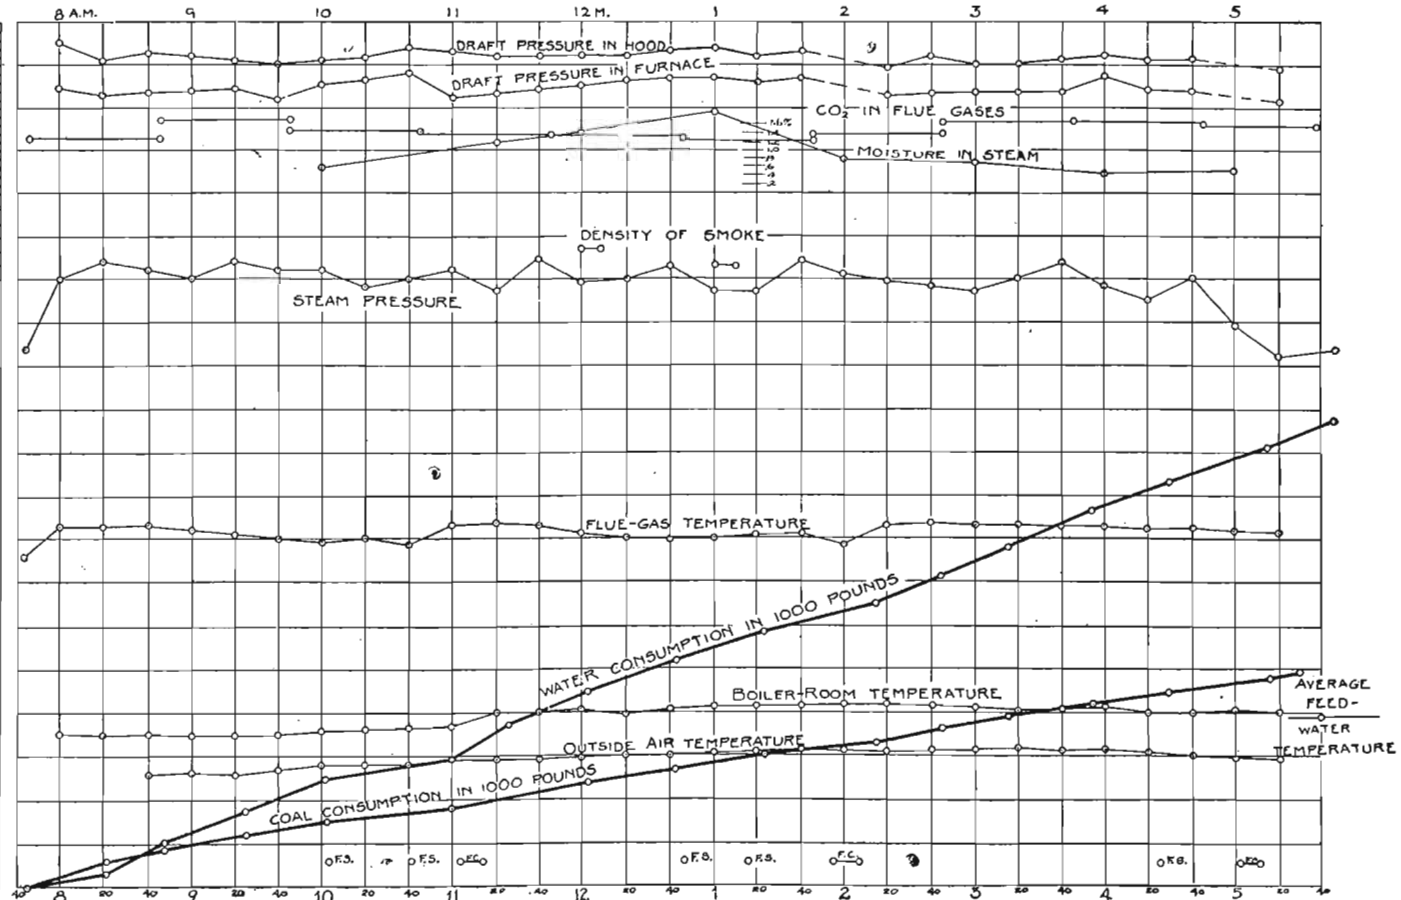 8 A.M. 9 10 11 12 M. 1 2 3 4 5
DRAFT PRESSURE IN HOOD
DRAFT PRESSURE IN FURNACE
CO2 IN FLUE GASES
1.6%
1.4
1.2
1.0
.8
.6
.4
.2
MOISTURE IN STEAM
DENSITY OF SMOKE
STEAM PRESSURE
FLUE-GAS TEMPERATURE
WATER CONSUMPTION IN 1000 POUNDS
BOILER-ROOM TEMPERATURE
AVERAGE
FEED-
WATER
TEMPERATURE
OUTSIDE AIR TEMPERATURE
COAL CONSUMPTION IN 1000 POUNDS
F.S. F.S. F.C. F.S. F.S. F.C. F.S. F.C.
40 8 20 40 9 20 40 10 20 40 11 20 40 12 20 40 1 20 40 2 20 40 3 20 40 4 20 40 5 20 40